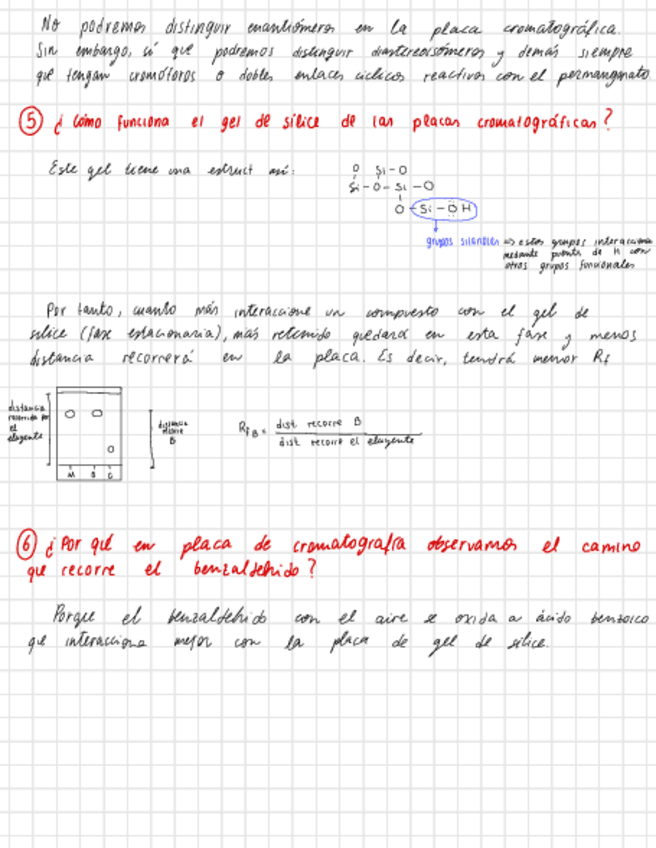 No podremos distinguir enantiómeros en la placa cromatográfica.
Sin embargo, sí que podremos distinguir diastereoisómeros y demás siempre
que tengan cromóforos o dobles enlaces cíclicos reactivos con el permanganato
⑤ ¿Cómo funciona el gel de sílice de las placas cromatográficas?
Este gel tiene una estruct así:
O Si-O
Si-O-Si-O
O-Si-OH
grupos silanoles => estos grupos interacciona
mediante puente de H con
otros grupos funcionales
Por tanto, cuanto más interaccione un compuesto con el gel de
sílice (fase estacionaria), más retenido quedará en esta fase y menos
distancia recorrerá en la placa. Es decir, tendrá menor Rf
distancia
recorrida por
el
eluyente
M B
distancia
recorre
B
RfB = dist recorre B
dist recorre el eluyente
⑥ ¿Por qué en placa de cromatografía observamos el camino
que recorre el benzaldehido?
Porque el benzaldehido con el aire se oxida a ácido benzoico
que interacciona mejor con la placa de gel de sílice.